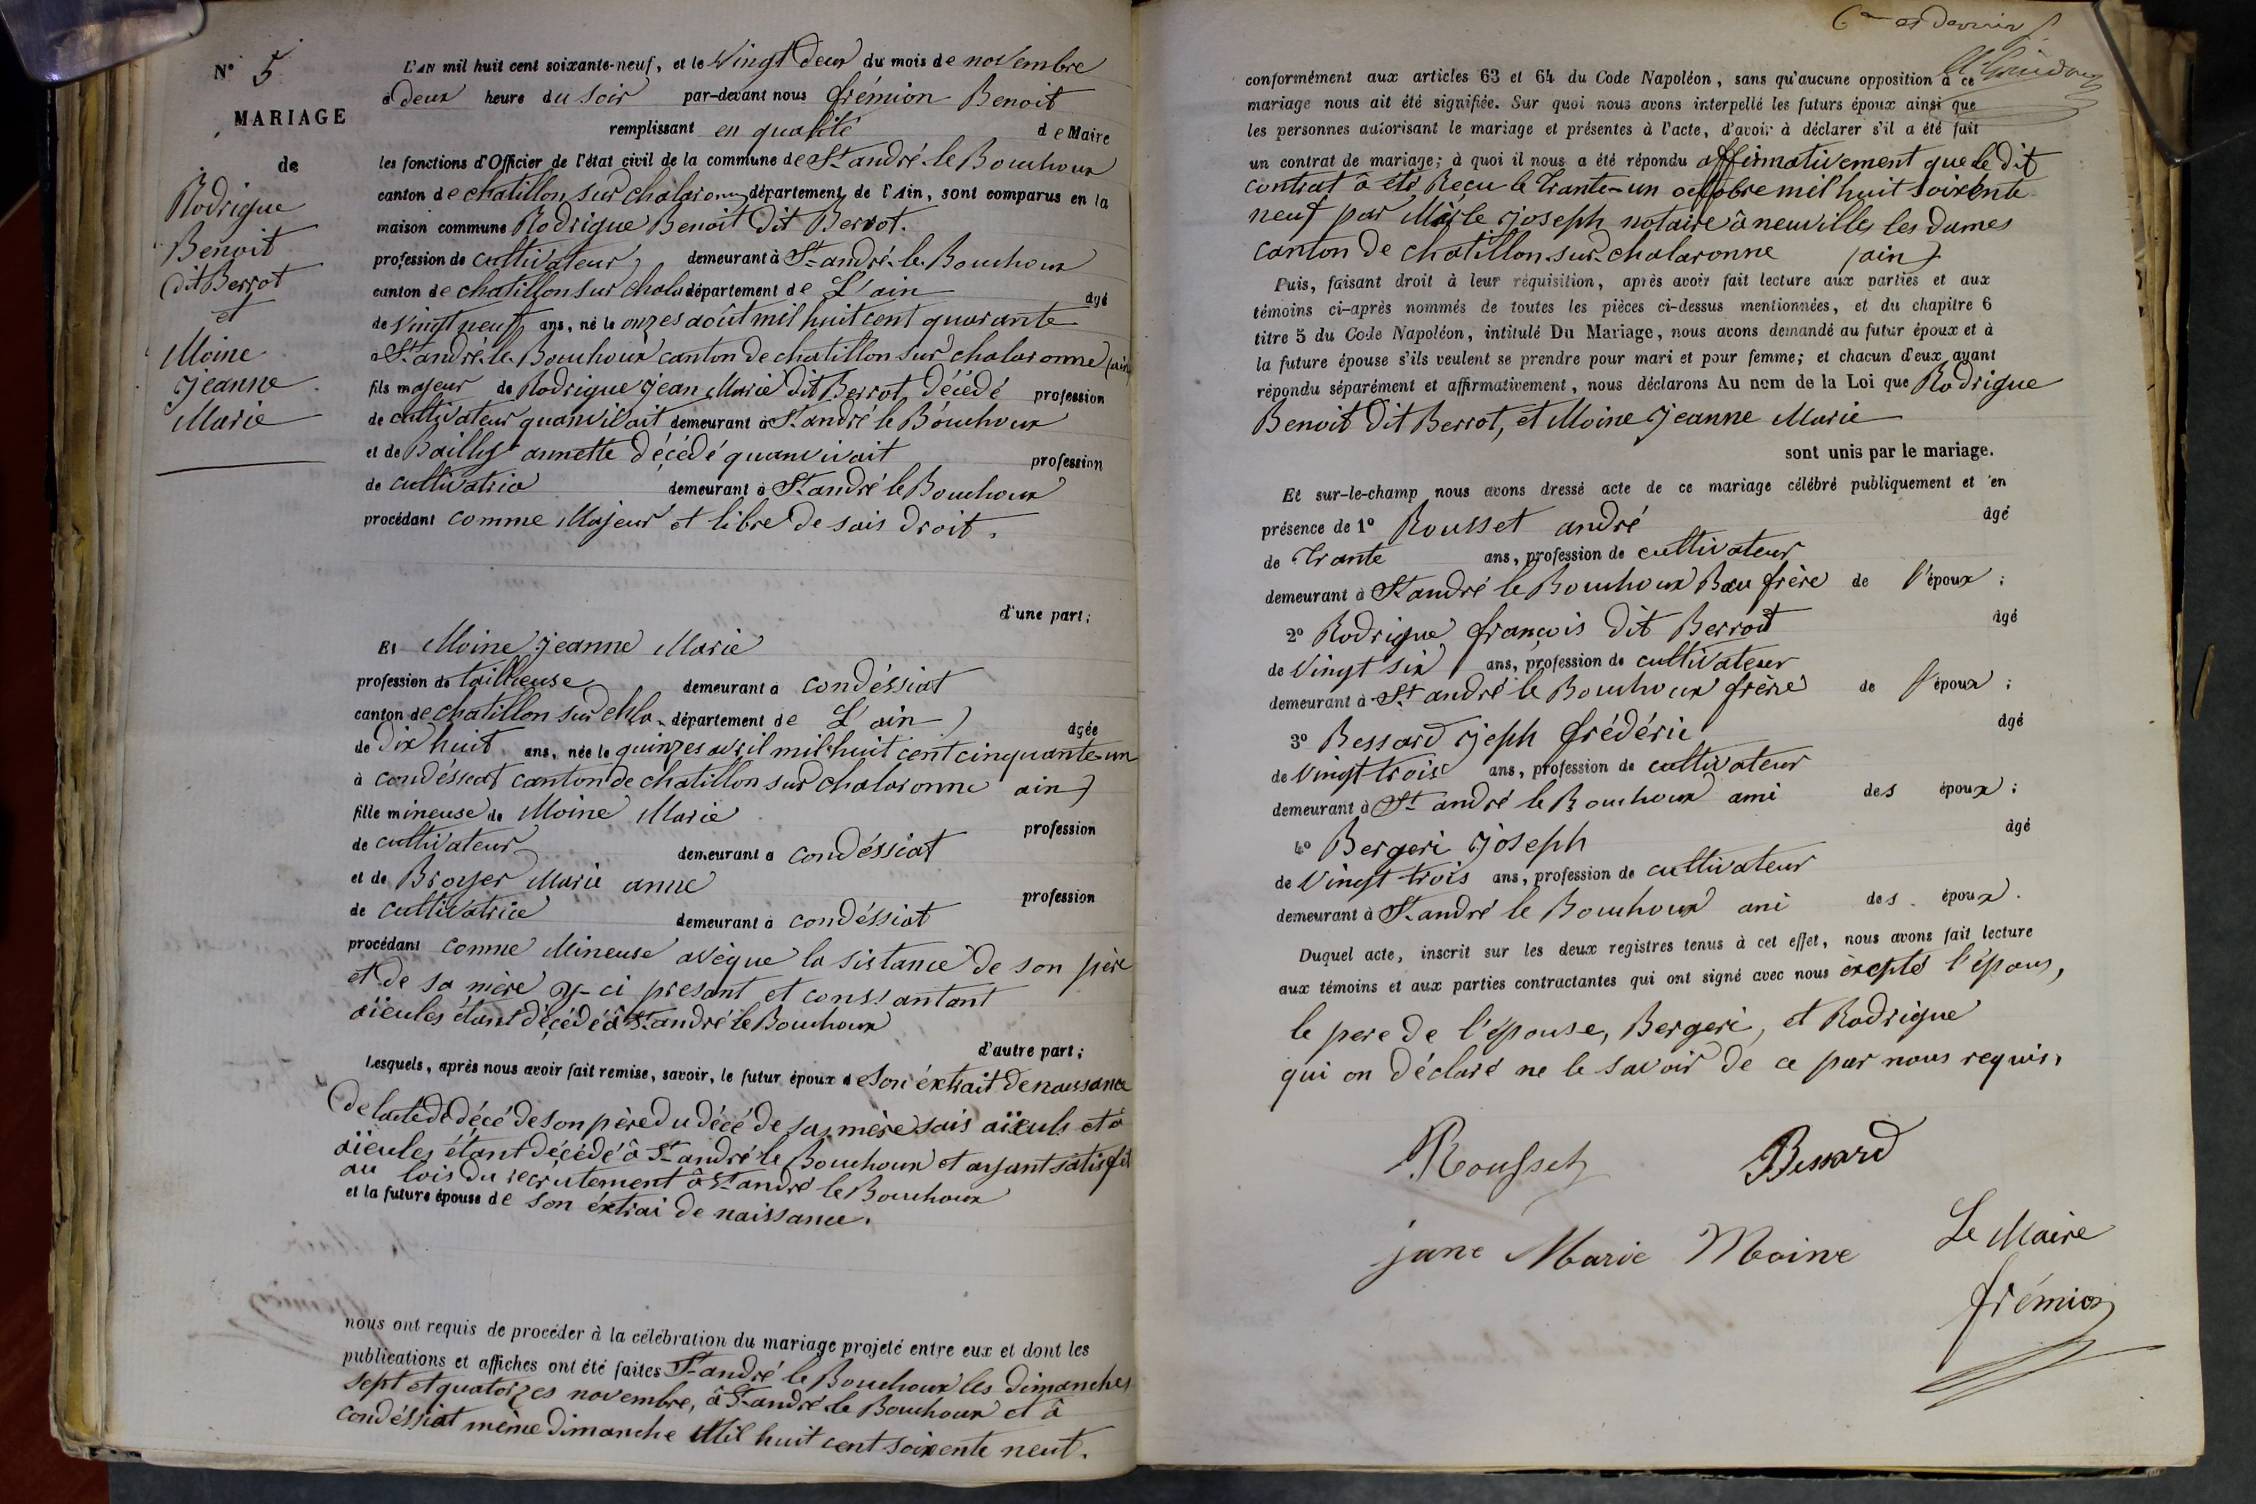 N° 5
MARIAGE
de
Rodrigue
Benoit
dit Berrot
et
Moine
Jeanne
Marie
L'AN mil huit cent soixante-neuf, et le Vingt Deux du mois de novembre
à deux heure du soir par-devant nous frémion Benoit
remplissant en qualité de Maire
les fonctions d'Officier de l'état civil de la commune de St andré le Bouchoux
canton de chatillon sur chalaronne département de l'Ain, sont comparus en la
maison commune Rodrigue Benoit Dit Berrot.
profession de cultivateur demeurant à St andré le Bouchoux
canton de chatillon sur chala département de L'ain âgé
de Vingt neuf ans, né le onzes août mil huit cent quarante
a St andré le Bouchoux canton de chatillon sur chalaronne (ain)
fils majeur de Rodrigue Jean Marie dit Berrot Décédé profession
de cultivateur quanvivait demeurant à St andré le Bouchoux
et de Bailly annette Décédé quanvivait profession
de cultivatrice demeurant à St andré le Bouchoux
procédant comme Majeur et libre de sais droit.
d'une part;
Et Moine Jeanne Marie
profession de tailleuse demeurant à condéssiat
canton de chatillon sur chla département de L'ain) âgée
de Dix huit ans, née le quinzes avril mil huit cent cinquante-un
à condéssiat canton de chatillon sur chalaronne ain)
fille mineuse de Moine Marie profession
de cultivateur demeurant à condéssiat
et de Broyer Marie anne profession
de cultivatrice demeurant à condéssiat
procédant comme Mineuse avèque la sistance de son père
et de sa mère y-ci presant et conssantant
aïeules étant décédé à St andré le Bouchoux
d'autre part;
Lesquels, après nous avoir fait remise, savoir, le futur époux de Son éxtrait de naissance
De lacte de décé de son père du décé de sa mère sais aïeuls et
aïeules étant décédé à St andré le Bouchoux et ayant satisfit
au lois du recrutement à St andré le Bouchoux
et la future épouse de son éxtrai de naissance.
nous ont requis de procéder à la célébration du mariage projeté entre eux et dont les
publications et affiches ont été faites St andré le Bouchoux les dimanches
sept et quatorzes novembre, à St andré le Bouchoux et à
condéssiat même Dimanche Mil huit cent soixente neuf.
6me et dernier f.
conformément aux articles 63 et 64 du Code Napoléon, sans qu'aucune opposition à ce
mariage nous ait été signifiée. Sur quoi nous avons interpellé les futurs époux ainsi que
les personnes autorisant le mariage et présentes à l'acte, d'avoir à déclarer s'il a été fait
un contrat de mariage; à quoi il nous a été répondu affirmativement que le dit
contrat à été Reçu le trante-un octobre mil huit soixente
neuf par Merle Joseph notaire à neuville les dames
canton de chatillon-sur-chalaronne (ain)
Puis, faisant droit à leur réquisition, après avoir fait lecture aux parties et aux
témoins ci-après nommés de toutes les pièces ci-dessus mentionnées, et du chapitre 6
titre 5 du Code Napoléon, intitulé Du Mariage, nous avons demandé au futur époux et à
la future épouse s'ils veulent se prendre pour mari et pour femme; et chacun d'eux ayant
répondu séparément et affirmativement, nous déclarons Au nom de la Loi que Rodrigue
Benoit Dit Berrot, et Moine Jeanne Marie
sont unis par le mariage.
Et sur-le-champ nous avons dressé acte de ce mariage célébré publiquement et en
présence de 1° Rousset andré âgé
de Trante ans, profession de cultivateur
demeurant à St andré le Bouchoux Bau frère de l'époux;
2° Rodrigue françois Dit Berrot âgé
de Vingt six ans, profession de cultivateur
demeurant à St andré le Bouchoux frère de l'époux;
3° Bessard Jjeph frédéric âgé
de Vingt trois ans, profession de cultivateur
demeurant à St andré le Bouchoux ami des époux;
4° Bergeri Joseph âgé
de Vingt trois ans, profession de cultivateur
demeurant à St andré le Bouchoux ami des époux.
Duquel acte, inscrit sur les deux registres tenus à cet effet, nous avons fait lecture
aux témoins et aux parties contractantes qui ont signé avec nous èxepté l'époux,
le pere de l'épouse, Bergeri, et Rodrigue
qui on déclaré ne le savoir de ce par nous requis.
Rousset Bessard
jane Marie Moine Le Maire
frémion